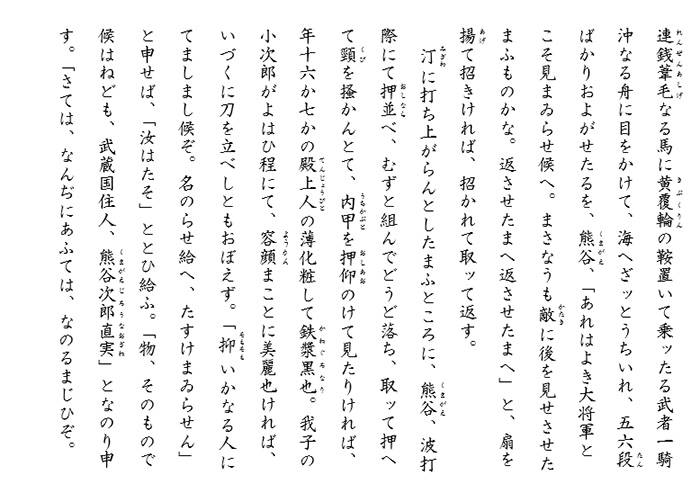 連銭葦毛なる馬に黄覆輪の鞍置いて乗ッたる武者一騎
沖なる舟に目をかけて、海へざッとうちいれ、五六段
ばかりおよがせたるを、熊谷、「あれはよき大将軍と
こそ見まゐらせ候へ。まさなうも敵に後を見せさせた
まふものかな。返させたまへ返させたまへ」と、扇を
揚て招きければ、招かれて取ッて返す。
汀に打ち上がらんとしたまふところに、熊谷、波打
際にて押並べ、むずと組んでどうど落ち、取ッて押へ
て頸を掻かんとて、内甲を押仰のけて見たりければ、
年十六か七かの殿上人の薄化粧して鉄漿黒也。我子の
小次郎がよはひ程にて、容顔まことに美麗也ければ、
いづくに刀を立べしともおぼえず。「抑いかなる人に
てましまし候ぞ。名のらせ給へ、たすけまゐらせん」
と申せば、「汝はたそ」ととひ給ふ。「物、そのもので
候はねども、武蔵国住人、熊谷次郎直実」となのり申
す。「さては、なんぢにあふては、なのるまじひぞ。